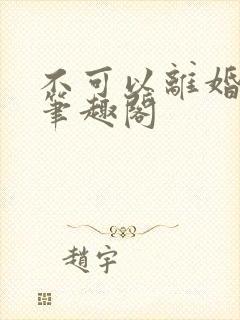 不可以離婚
筆趣閣
趙宇